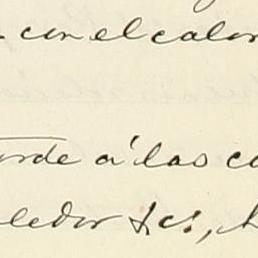 con el calor
tarde á las co
ledor &c,